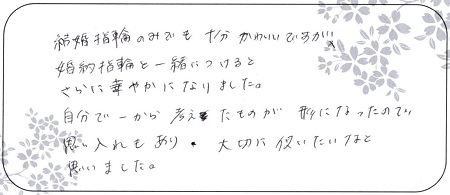 結婚指輪のみでも十分かわいいですが、
婚約指輪と一緒につけると
さらに華やかになりました。
自分で一から考えたものが形になったので
思い入れもあり、大切に使いたいなと
思いました。